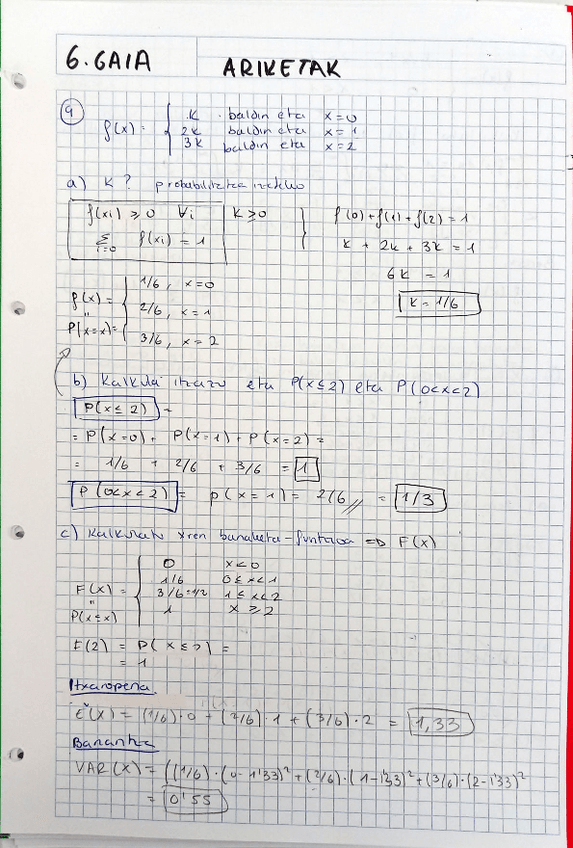 6. GAIA
ARIKETAK
9
f(x) = { k baldin eta x=0
2k baldin eta x=1
3k baldin eta x=2
a) K? probabilitatea izateko
f(xi) ≥ 0 ∀i K ≥ 0 } f(0)+f(1)+f(2)=1
Σ i=0 f(xi) = 1 k + 2k + 3k = 1
6k = 1
k = 1/6
f(x) = { 1/6, x=0
" 2/6, x=1
P(X=x)= 3/6, x=2
b) Kalkula itzazu eta P(x≤2) eta P(0<x<2)
P(x≤2) =
= P(x=0) + P(x=1) + P(x=2) =
= 1/6 + 2/6 + 3/6 = 1
P(0<x<2) = p(x=1) = 2/6 = 1/3
c) Kalkulatu x-ren banaketa-funtzioa => F(x)
F(x) = { 0 x<0
" 1/6 0≤x<1
3/6=1/2 1≤x<2
P(X≤x) 1 x≥2
F(2) = P(x≤2) =
= 1
Itxaropena
E(X) = (1/6)·0 + (2/6)·1 + (3/6)·2 = 1,33
Bariantza
VAR(X) = ((1/6)·(0-1'33)² + (2/6)·(1-1'33)² + (3/6)·(2-1'33)²
= 0'55